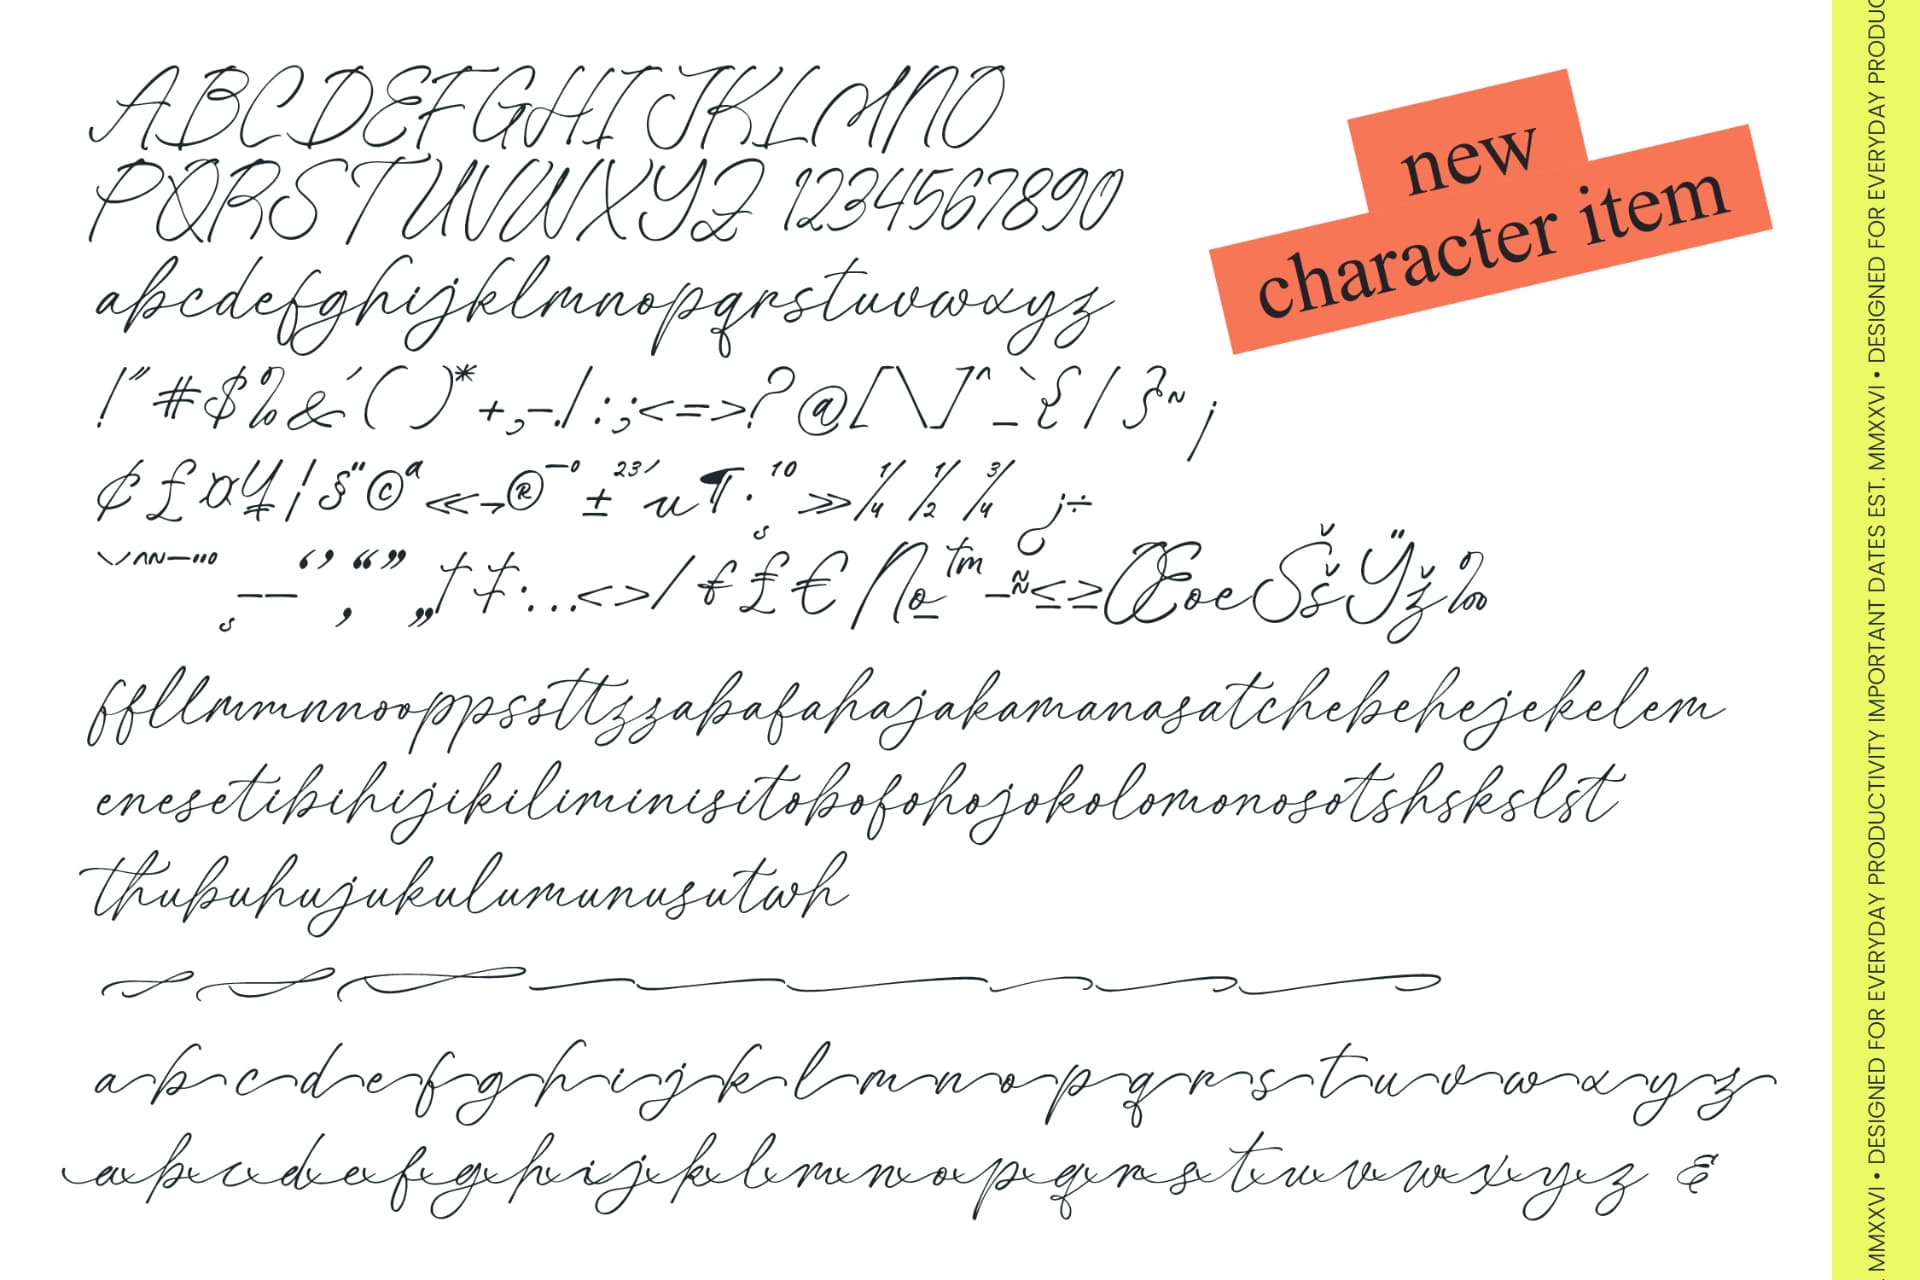 ABCDEFGHIJKLMNO
PQRSTUVWXYZ 1234567890
abcdefghijklmnopqrstuvwxyz
!"#$%&'()*+,-./:;<=>?@[\]^_`{|}~¡
¢£¤¥¦§¨©ª«¬®¯°±²³´µ¶·¸¹º»¼½¾¿÷
`´ˆ˜¯¨˚¸–—‘’‚“”„†‡·…‹›⁄₣₤€№™−≈≤≥ŒœŠšŸž‰
ffllmmnnooppssttzzabafahajakamanasatchebehejekelem
enesetibihijikiliminisitobofohojokolomonosotshskslst
thubuhujukulumunusutwh
abcdefghijklmnopqrstuvwxyz
abcdefghijklmnopqrstuvwxyz &
new
character item
MMXXVI • DESIGNED FOR EVERYDAY PRODUCTIVITY IMPORTANT DATES EST. MMXXVI • DESIGNED FOR EVERYDAY PRODUC